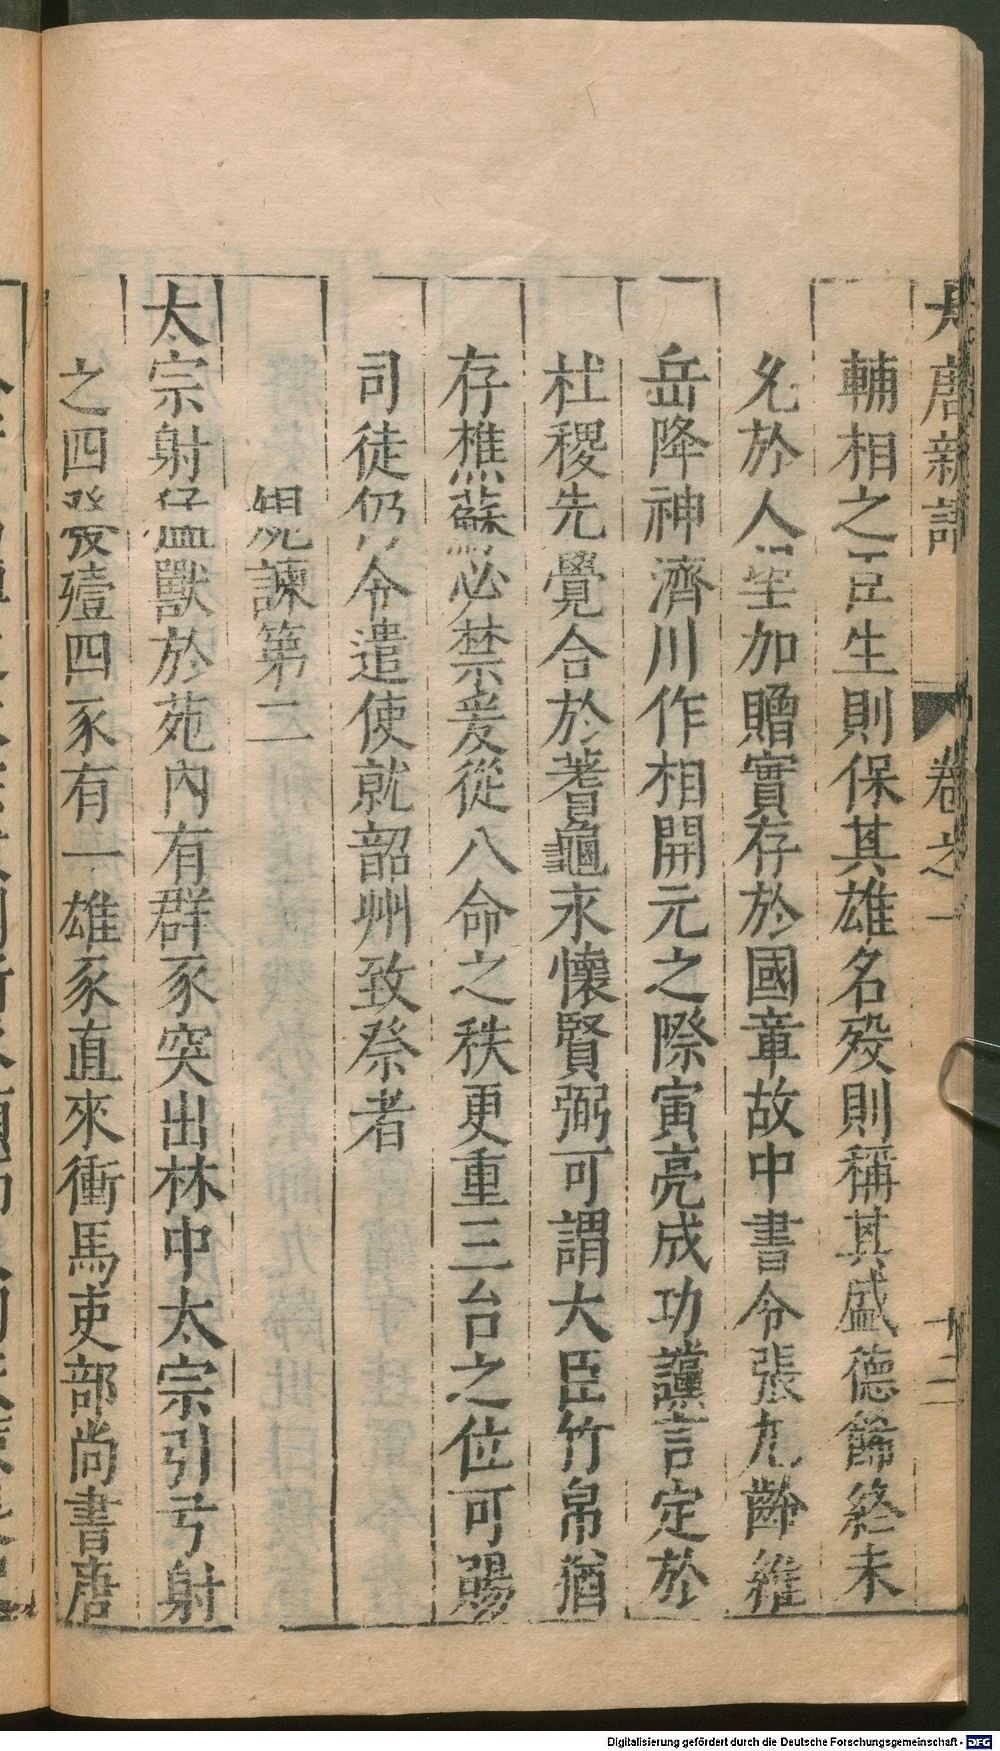 大唐新語 卷之一 十二
輔相之臣生則保其雄名歿則稱其盛德飾終未
允於人望加贈實存於國章故中書令張九齡維
岳降神濟川作相開元之際寅亮成功讜言定於
社稷先覺合於蓍龜永懷賢弼可謂大臣竹帛猶
存樵蘇必禁爰從八命之秩更重三台之位可賜
司徒仍令遣使就韶州致祭者
規諫第二
太宗射猛獸於苑內有群豕突出林中太宗引弓射
之四發殪四豕有一雄豕直來衝馬吏部尚書唐
Digitalisierung gefördert durch die Deutsche Forschungsgemeinschaft - DFG